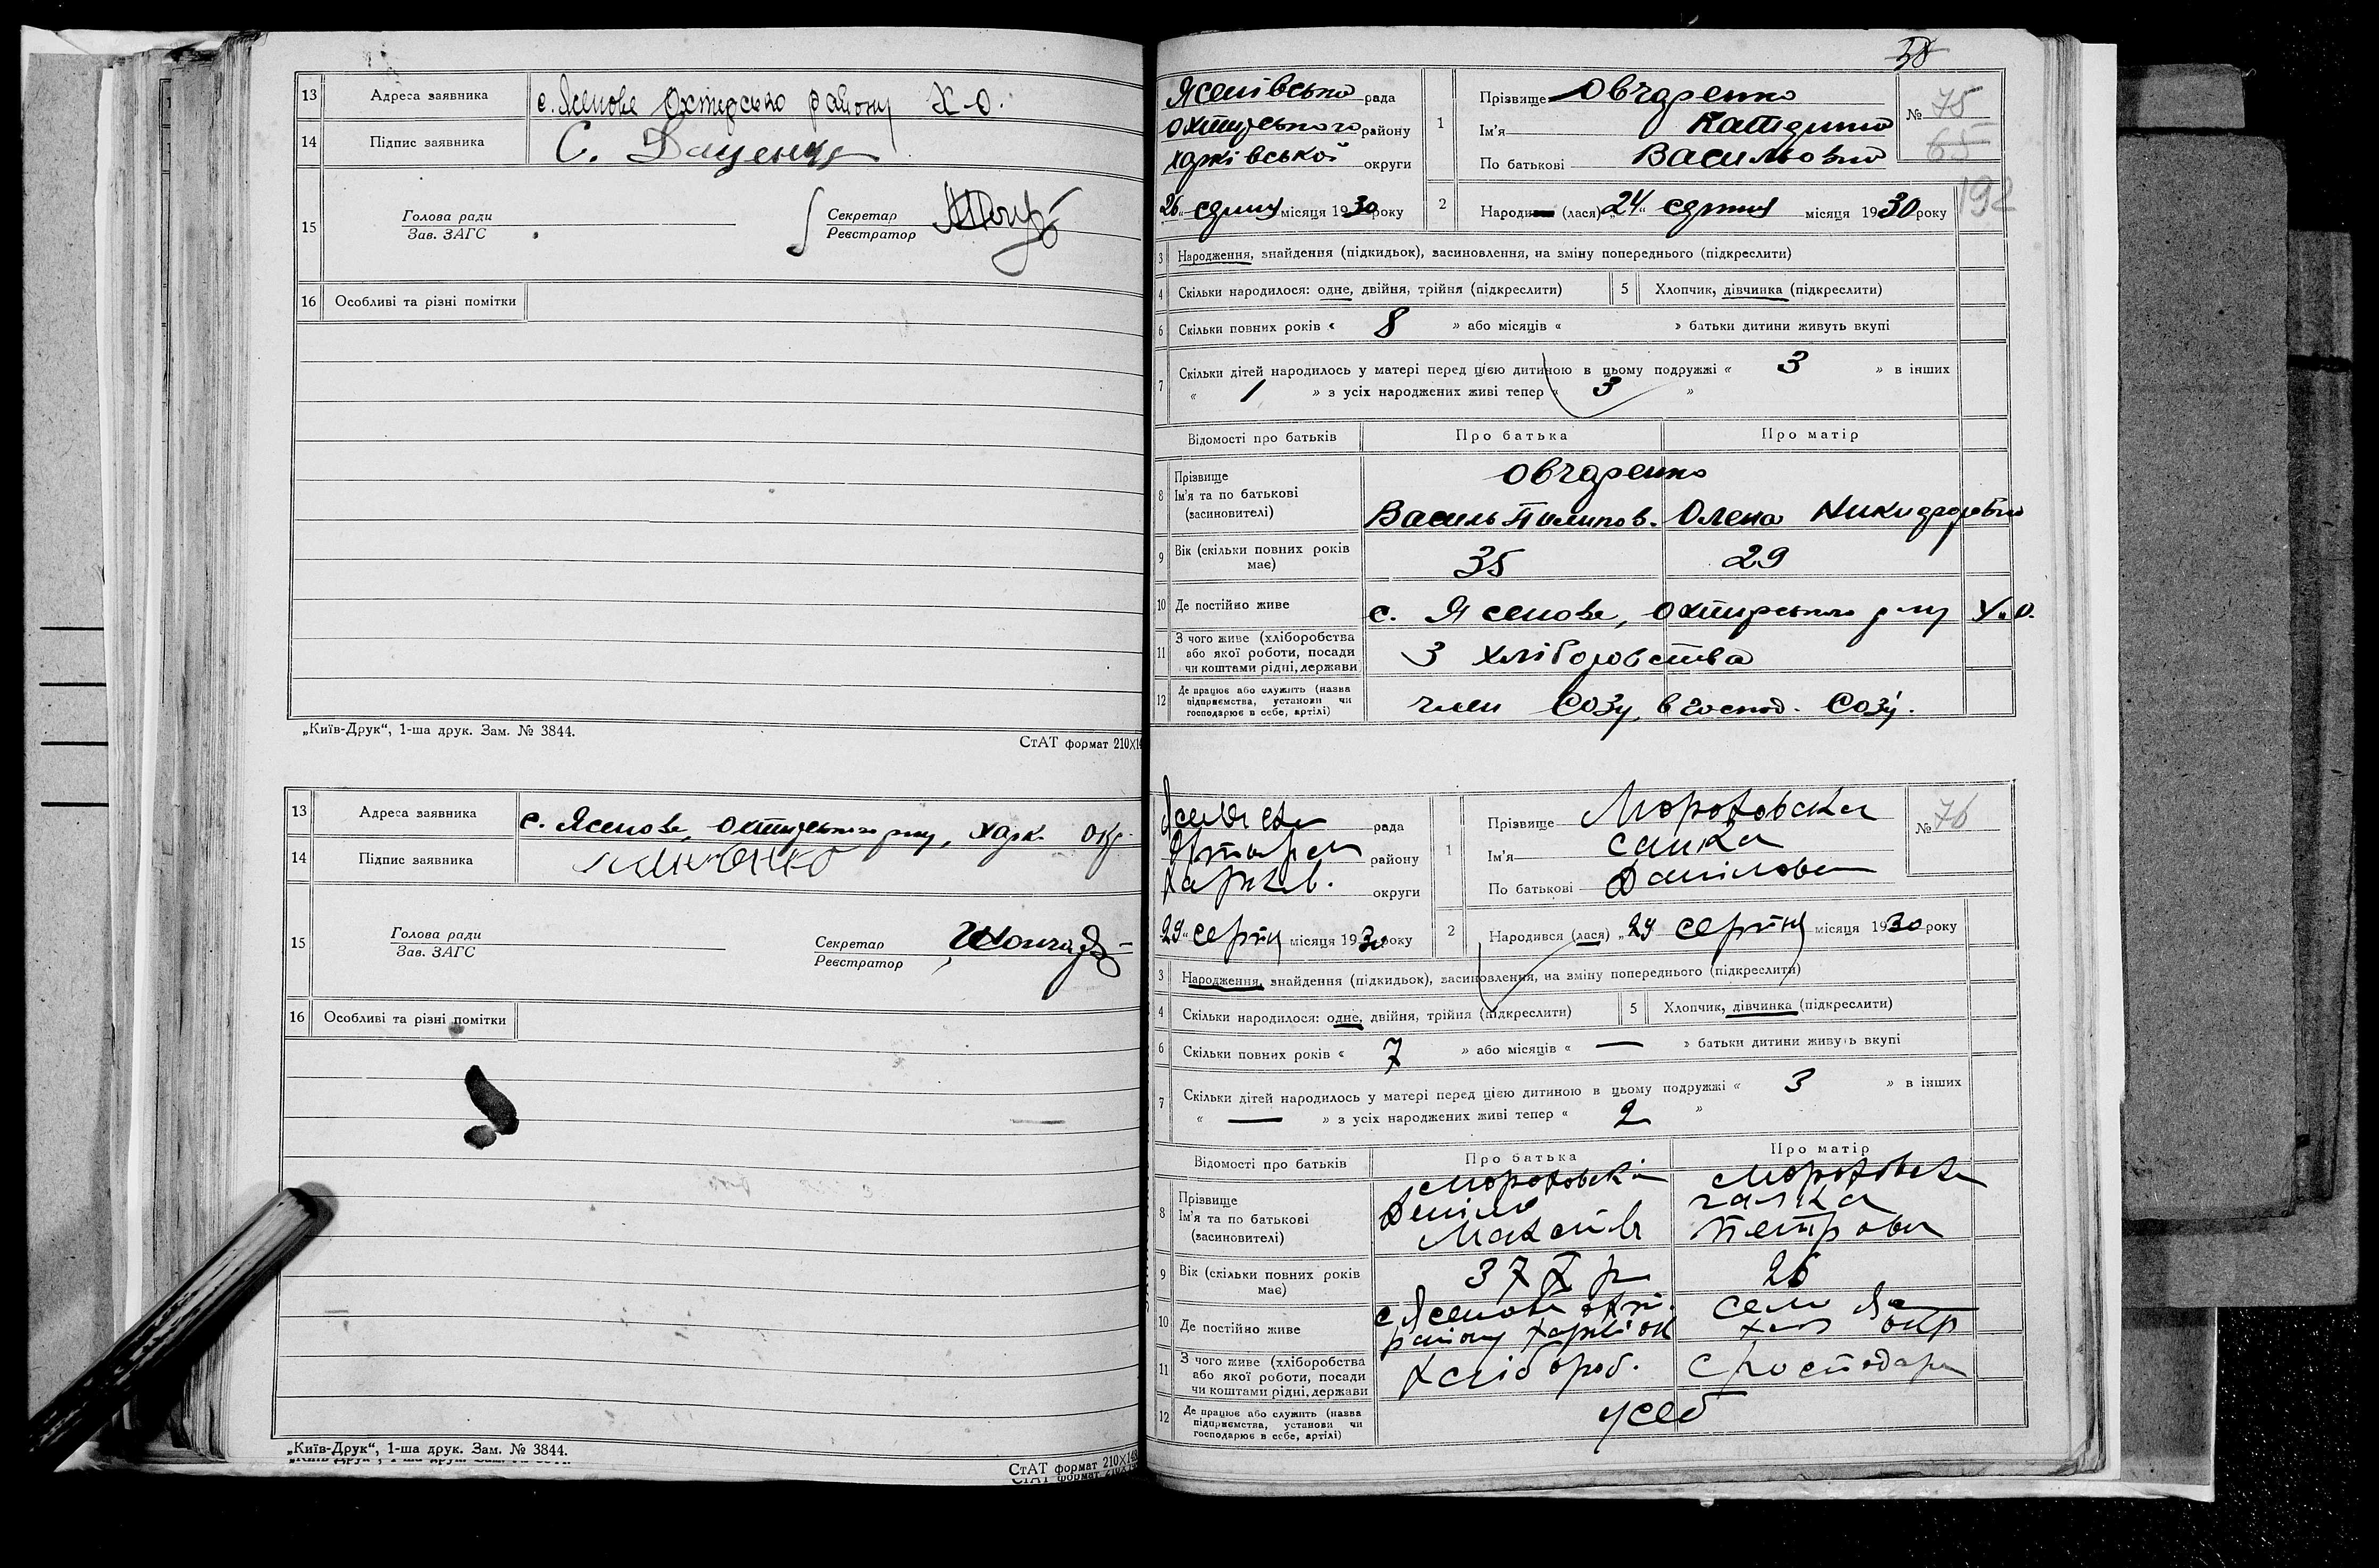 13 Адреса заявника с. Ясенове Охтирського району Х-О.
14 Підпис заявника С. Даценко
15 Голова ради
Зав. ЗАГС
Секретар
Реєстратор
16 Особливі та різні помітки
„Київ-Друк“, 1-ша друк. Зам. № 3844.
СтАТ формат 210×14
13 Адреса заявника с. Ясенове, Охтирського р-ну, Харк. окр.
14 Підпис заявника
15 Голова ради
Зав. ЗАГС
Секретар
Реєстратор
16 Особливі та різні помітки
„Київ-Друк“, 1-ша друк. Зам. № 3844.
СтАТ формат 210×148
38
Ясенівська рада
Охтирського району
Харківської округи
26 серпня місяця 1930 року
1 Прізвище Овчаренко
Ім'я Катерина
По батькові Васильовна
№ 75
65
192
2 Народи (лася) „24“ серпня місяця 1930 року
3 Народження, знайдення (підкидьок), засиновлення, на зміну попереднього (підкреслити)
4 Скільки народилося: одне, двійня, трійня (підкреслити) 5 Хлопчик, дівчинка (підкреслити)
6 Скільки повних років « 8 » або місяців « » батьки дитини живуть вкупі
7 Скільки дітей народилось у матері перед цією дитиною в цьому подружжі « 3 » в інших
« 1 » з усіх народжених живі тепер « 3 »
Відомості про батьків Про батька Про матір
8 Прізвище
Ім'я та по батькові
(засиновителі)
Овчаренко
Василь Пилипов. Олена Никифоровна
9 Вік (скільки повних років має) 35 29
10 Де постійно живе с. Ясенове, Охтирського р-ну Х.О.
11 З чого живе (хліборобства
або якої роботи, посади
чи коштами рідні, держави)
З хліборобства
12 Де працює або служить (назва
підприємства, установи чи
господарює в себе, артілі)
член Созу, в господ. Созу.
Ясенівська рада
Охтирськ району
Харків. округи
29 серпня місяця 1930 року
1 Прізвище Мороховська
Ім'я Санка
По батькові Данілова
№ 76
2 Народився (лася) „29 серпня місяця 1930 року
3 Народження, знайдення (підкидьок), засиновлення, на зміну попереднього (підкреслити)
4 Скільки народилося: одне, двійня, трійня (підкреслити) 5 Хлопчик, дівчинка (підкреслити)
6 Скільки повних років « 7 » або місяців « — » батьки дитини живуть вкупі
7 Скільки дітей народилось у матері перед цією дитиною в цьому подружжі « 3 » в інших
« — » з усіх народжених живі тепер « 2 »
Відомості про батьків Про батька Про матір
8 Прізвище
Ім'я та по батькові
(засиновителі)
Мороховскі Мороховска
Даніло Галка
Максимів Петрова
9 Вік (скільки повних років має) 37 р 26
10 Де постійно живе
с. Ясенове охти. село Яс
району Харків ок Харк окр
11 З чого живе (хліборобства
або якої роботи, посади
чи коштами рідні, держави
Хлібороб. Господарка
12 Де працює або служить (назва
підприємства, установи чи
господарює в себе, артілі)
усеб